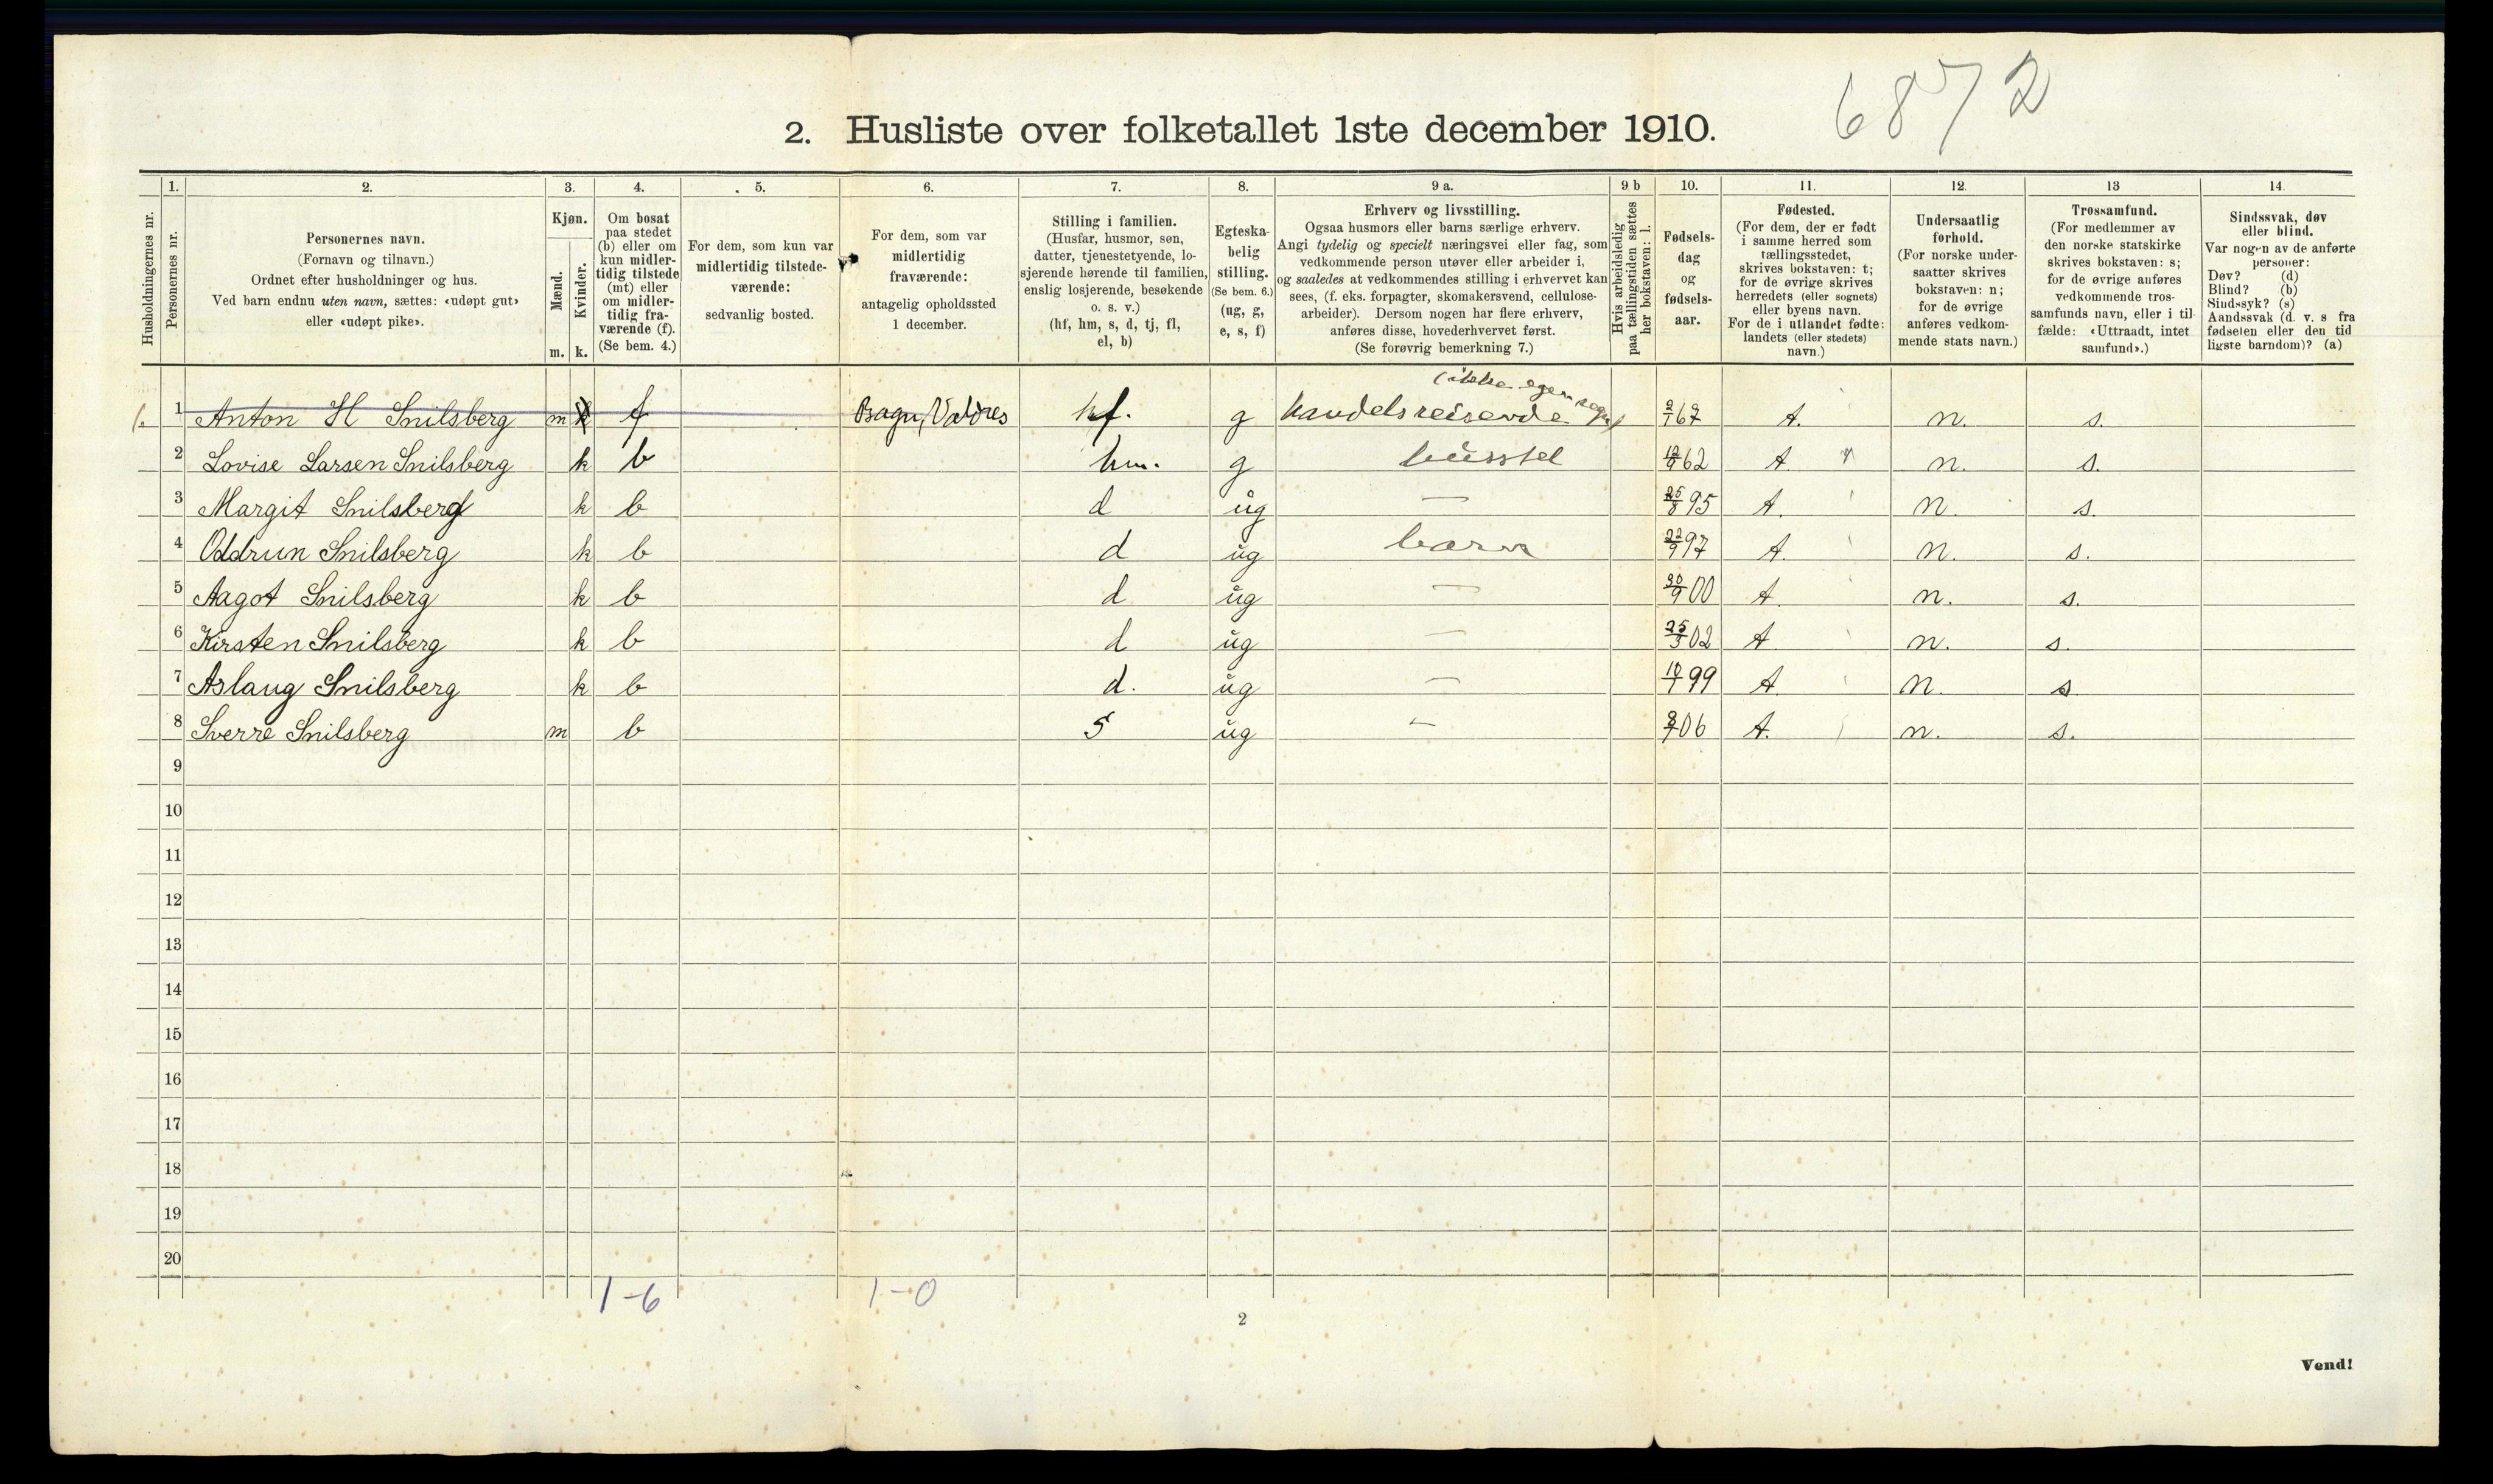 6872
2. Husliste over folketallet 1ste december 1910.
Husholdningernes nr.
1.
Personernes nr.
2.
Personernes navn.
(Fornavn og tilnavn.)
Ordnet efter husholdninger og hus.
Ved barn endnu uten navn, sættes: «udøpt gut»
eller «udøpt pike».
3.
Kjøn.
Mænd.
Kvinder.
m. k.
4.
Om bosat
paa stedet
(b) eller om
kun midler-
tidig tilstede
(mt) eller
om midler-
tidig fra-
værende (f).
(Se bem. 4.)
5.
For dem, som kun var
midlertidig tilstede-
værende:
sedvanlig bosted.
6.
For dem, som var
midlertidig
fraværende:
antagelig opholdssted
1 december.
7.
Stilling i familien.
(Husfar, husmor, søn,
datter, tjenestetyende, lo-
sjerende hørende til familien,
enslig losjerende, besøkende
o. s. v.)
(hf, hm, s, d, tj, fl,
el, b)
8.
Egteska-
belig
stilling.
(Se bem. 6.)
(ug, g,
e, s, f)
9 a.
Erhverv og livsstilling.
Ogsaa husmors eller barns særlige erhverv.
Angi tydelig og specielt næringsvei eller fag, som
vedkommende person utøver eller arbeider i,
og saaledes at vedkommendes stilling i erhvervet kan
sees, (f. eks. forpagter, skomakersvend, cellulose-
arbeider). Dersom nogen har flere erhverv,
anføres disse, hovederhvervet først.
(Se forøvrig bemerkning 7.)
9 b
Hvis arbeidsledig
paa tællingstiden sættes
her bokstaven: l.
10.
Fødsels-
dag
og
fødsels-
aar.
11.
Fødested.
(For dem, der er født
i samme herred som
tællingsstedet,
skrives bokstaven: t;
for de øvrige skrives
herredets (eller sognets)
eller byens navn.
For de i utlandet fødte:
landets (eller stedets)
navn.)
12.
Undersaatlig
forhold.
(For norske under-
saatter skrives
bokstaven: n;
for de øvrige
anføres vedkom-
mende stats navn.)
13
Trossamfund.
(For medlemmer av
den norske statskirke
skrives bokstaven: s;
for de øvrige anføres
vedkommende tros-
samfunds navn, eller i til-
fælde: «Uttraadt, intet
samfund».)
14.
Sindssvak, døv
eller blind.
Var nogen av de anførte
personer:
Døv? (d)
Blind? (b)
Sindssyk? (s)
Aandssvak (d. v. s fra
fødselen eller den tid
ligste barndom)? (a)
(ikke egen regn)
1. 1 Anton H Snilsberg m f Bagn, Valdres hf. g handelsreisende 2/1 67 t. n. s.
2 Lovise Larsen Snilsberg k b hm. g husstel 12/9 62 t n. s.
3 Margit Snilsberg k b d ug — 25/8 95 t. n. s.
4 Oddrun Snilsberg k b d ug barn 22/9 97 t. n. s.
5 Aagot Snilsberg k b d ug — 30/9 00 t. n. s.
6 Kirsten Snilsberg k b d ug — 25/5 02 t n. s.
7 Aslaug Snilsberg k b d. ug — 10/1 99 t. n. s
8 Sverre Snilsberg m b s ug — 8/7 06 t. n. s.
9
10
11
12
13
14
15
16
17
18
19
20
1-6 1-0
2
Vend!